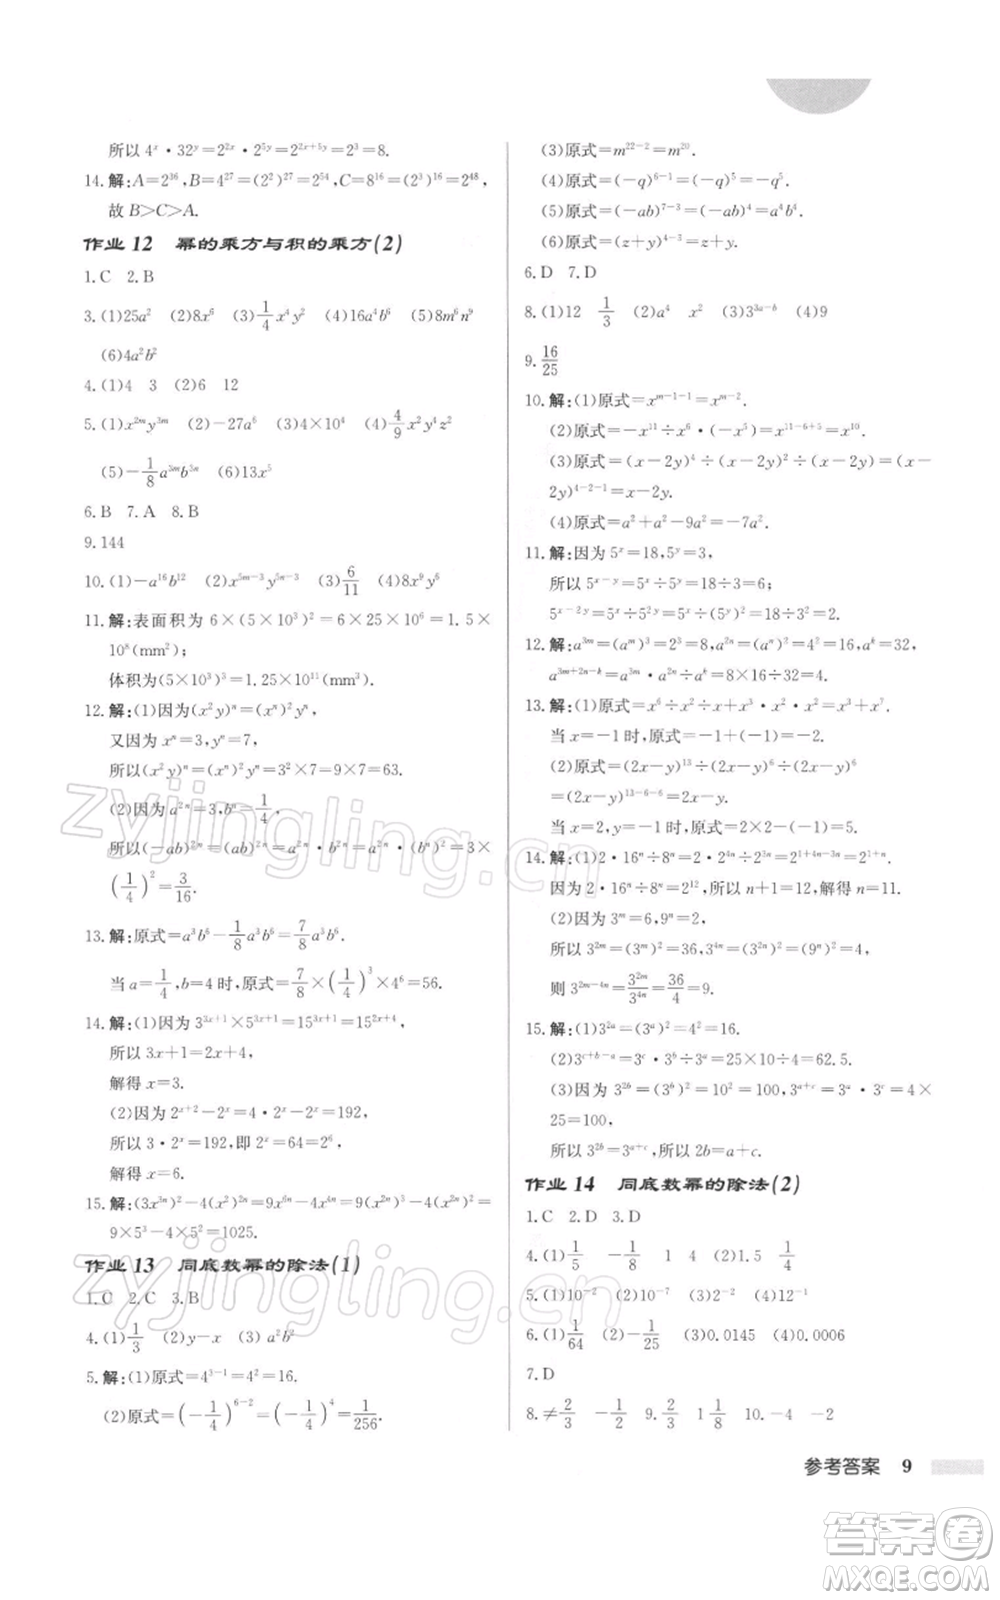 所以 4ˣ・32ʸ=2²ˣ・2⁵ʸ=2²ˣ⁺⁵ʸ=2³=8.
14.解:A=2³⁶,B=4²⁷=(2²)²⁷=2⁵⁴,C=8¹⁶=(2³)¹⁶=2⁴⁸,
故 B>C>A.
作业 12 幂的乘方与积的乘方(2)
1.C 2.B
3.(1)25a² (2)8x⁶ (3)1/4 x⁴y² (4)16a⁴b⁶ (5)8m⁶n⁹
(6)4a²b²
4.(1)4 3 (2)6 12
5.(1)x²ᵐy³ᵐ (2)-27a⁶ (3)4×10⁴ (4)4/9 x²y⁴z²
(5)-1/8 a³ᵐb³ⁿ (6)13x⁵
6.B 7.A 8.B
9.144
10.(1)-a¹⁶b¹² (2)x⁵ᵐ⁻³y⁵ⁿ⁻³ (3)6/11 (4)8x⁹y⁶
11.解:表面积为 6×(5×10³)²=6×25×10⁶=1.5×
10⁸(mm²);
体积为(5×10³)³=1.25×10¹¹(mm³).
12.解:(1)因为(x²y)ⁿ=(xⁿ)²yⁿ,
又因为 xⁿ=3,yⁿ=7,
所以(x²y)ⁿ=(xⁿ)²yⁿ=3²×7=9×7=63.
(2)因为 a²ⁿ=3,bⁿ=1/4,
所以(-ab)²ⁿ=(ab)²ⁿ=a²ⁿ・b²ⁿ=a²ⁿ・(bⁿ)²=3×
(1/4)²=3/16.
13.解:原式=a³b⁶-1/8 a³b⁶=7/8 a³b⁶.
当 a=1/4,b=4 时,原式=7/8×(1/4)³×4⁶=56.
14.解:(1)因为 3³ˣ⁺¹×5³ˣ⁺¹=15³ˣ⁺¹=15²ˣ⁺⁴,
所以 3x+1=2x+4,
解得 x=3.
(2)因为 2ˣ⁺²-2ˣ=4・2ˣ-2ˣ=192,
所以 3・2ˣ=192,即 2ˣ=64=2⁶,
解得 x=6.
15.解:(3x³ⁿ)²-4(x²ⁿ)²=9x⁶ⁿ-4x⁴ⁿ=9(x²ⁿ)³-4(x²ⁿ)²=
9×5³-4×5²=1025.
作业 13 同底数幂的除法(1)
1.C 2.C 3.B
4.(1)1/3 (2)y-x (3)a²b²
5.解:(1)原式=4³⁻¹=4²=16.
(2)原式=(-1/4)⁶⁻²=(-1/4)⁴=1/256.
(3)原式=m²²⁻²=m²⁰.
(4)原式=(-q)⁶⁻¹=(-q)⁵=-q⁵.
(5)原式=(-ab)⁵⁻¹=(-ab)⁴=a⁴b⁴.
(6)原式=(z+y)⁴⁻³=z+y.
6.D 7.D
8.(1)12 1/3 (2)a⁴ x² (3)3³ᵃ⁻ᵇ (4)9
9.16/25
10.解:(1)原式=xᵐ⁻¹⁻¹=xᵐ⁻².
(2)原式=-x¹¹÷x⁶・(-x⁵)=x¹¹⁻⁶⁺⁵=x¹⁰.
(3)原式=(x-2y)⁴÷(x-2y)²÷(x-2y)=(x-
2y)⁴⁻²⁻¹=x-2y.
(4)原式=a²+a²-9a²=-7a².
11.解:因为 5ˣ=18,5ʸ=3,
所以 5ˣ⁻ʸ=5ˣ÷5ʸ=18÷3=6;
5ˣ⁻²ʸ=5ˣ÷5²ʸ=5ˣ÷(5ʸ)²=18÷3²=2.
12.解:a³ᵐ=(aᵐ)³=2³=8,a²ⁿ=(aⁿ)²=4²=16,aᵏ=32,
a³ᵐ⁺²ⁿ⁻ᵏ=a³ᵐ・a²ⁿ÷aᵏ=8×16÷32=4.
13.解:(1)原式=x⁶÷x²÷x+x³・x²・x²=x³+x⁷.
当 x=-1 时,原式=-1-1=-2.
(2)原式=(2x-y)¹³÷(2x-y)⁶÷(2x-y)⁶
=(2x-y)¹³⁻⁶⁻⁶=2x-y.
当 x=2,y=-1 时,原式=2×2-(-1)=5.
14.解:(1)2・16ⁿ÷8ⁿ=2・2⁴ⁿ÷2³ⁿ=2¹⁺⁴ⁿ⁻³ⁿ=2¹⁺ⁿ.
因为 2・16ⁿ÷8ⁿ=2¹²,所以 n+1=12,解得 n=11.
(2)因为 3ᵐ=6,9ⁿ=2,
所以 3²ᵐ=(3ᵐ)²=36,3⁴ⁿ=(3²ⁿ)²=(9ⁿ)²=4,
则 3²ᵐ⁻⁴ⁿ=3²ᵐ/3⁴ⁿ=36/4=9.
15.解:(1)3²ᵃ=(3ᵃ)²=4²=16.
(2)3ᶜ⁺ᵇ⁻ᵃ=3ᶜ・3ᵇ÷3ᵃ=25×10÷4=62.5.
(3)因为 3²ᵇ=(3ᵇ)²=10²=100,3ᵃ⁺ᶜ=3ᵃ・3ᶜ=4×
25=100,
所以 3²ᵇ=3ᵃ⁺ᶜ,所以 2b=a+c.
作业 14 同底数幂的除法(2)
1.C 2.D 3.D
4.(1)1/5 -1/8 1 4 (2)1.5 1/4
5.(1)10⁻² (2)10⁻⁷ (3)2⁻² (4)3⁻³
6.(1)1/64 (2)-1/25 (3)0.0145 (4)0.0006
7.D
8.≠2/3 -1/2 9.2/3 1 1/8 10.-4 -2
参考答案 9
zyjingling.cn
zyjingling.cn
答案卷
MXQE.COM